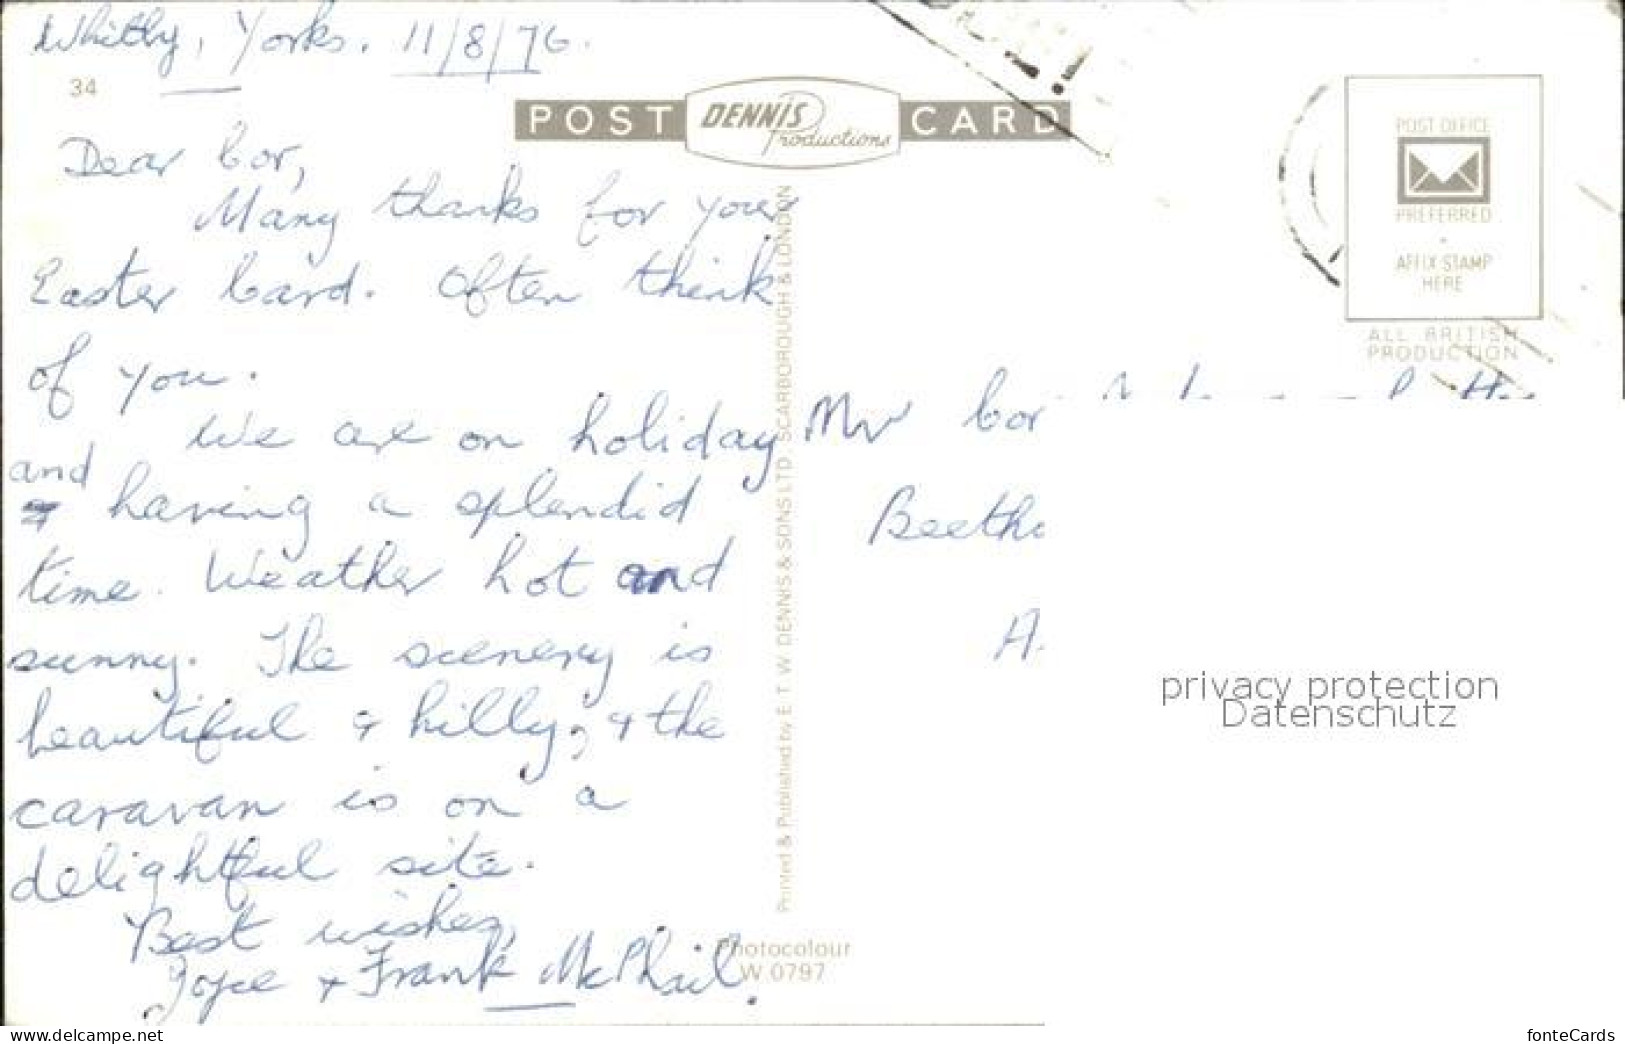 Whitby, Yorks. 11/8/76.
34
POST DENNIS Productions CARD
Dear Cor,
Many thanks for your
Easter Card. Often think
of you.
We are on holiday
and
having a splendid
time. Weather hot and
sunny. The scenery is
beautiful & hilly, & the
caravan is on a
delightful site.
Best wishes,
Joyce & Frank McPhail.
Printed & Published by E. T. W. DENNIS & SONS LTD., SCARBOROUGH & LONDON
Photocolour
W 0797
POST OFFICE
PREFERRED
AFFIX STAMP
HERE
ALL BRITISH
PRODUCTION
Mr Cor
Beetho
A.
privacy protection
Datenschutz
delcampe.net
fonteCards